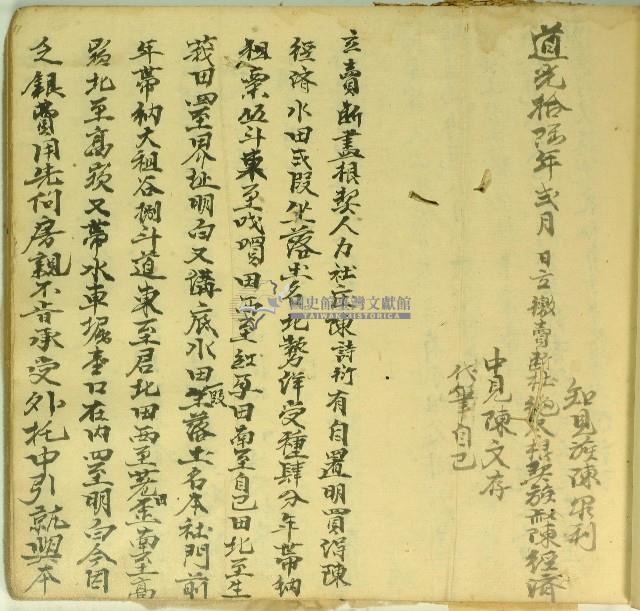 知見族陳
道光拾陸年弍月 日立繳賣斷社絕 契族 陳經濟
中見陳文存
代筆自己
立賣斷盡根契人力社庄陳詩衍有自置明買得陳
經濟水田弍段坐落土名北勢洋受種肆分年帶納
租粟伍斗東至 田西至紅 田南至自己田北至生
我田四至界址明白又溝底水田一段坐落土名本社門前
年帶納大租谷捌斗道東至君北田西至荒 南至高
嶺北至高崁又帶水車堀壹口在內四至明白今因
乏銀費用先問房親不 承受外托中引就與本
國史館臺灣文獻館
TAIWAN HISTORICA